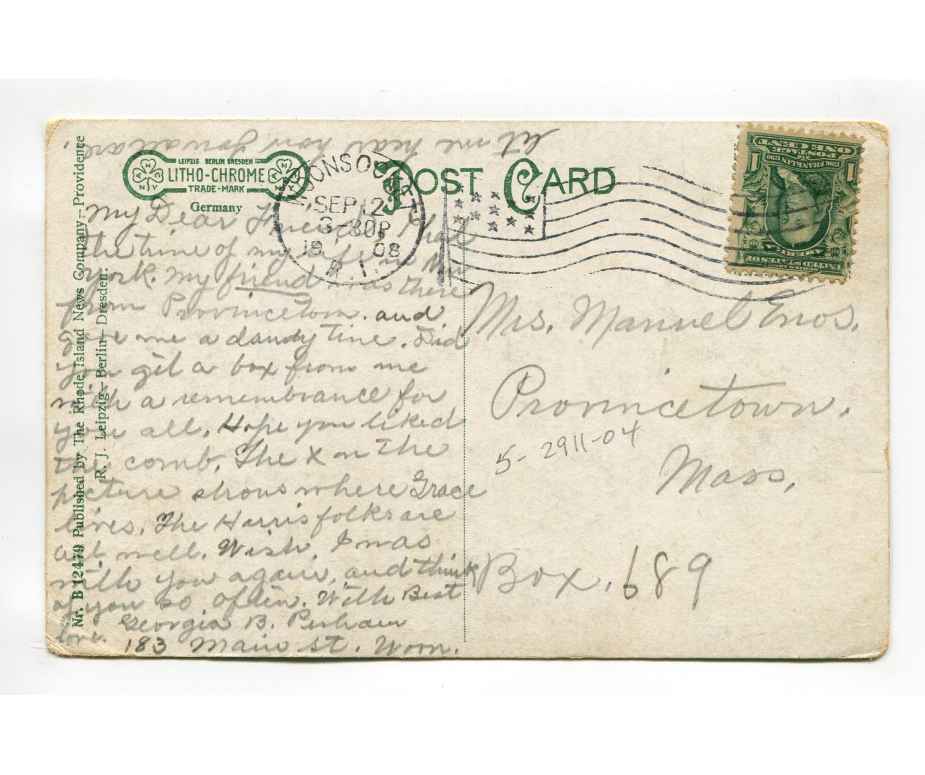 let me hear how you all are.
LEIPZIG BERLIN DRESDEN
LITHO-CHROME
TRADE-MARK
Germany
POST CARD
WOONSOCKET
SEP 12
3-30P
1908
R.I.
ONE CENT
POSTAGE
FRANKLIN
1 1
UNITED STATES OF AMERICA
Nr. B 12479 Published by The Rhode Island News Company - Providence
R. J. Leipzig - Berlin - Dresden.
My Dear Friend, I had
the time of my life in New
York. My friend was there
from Provincetown. and
gave me a dandy time. Did
you get a box from me
with a remembrance for
you all. Hope you liked
the comb. The X on the
picture shows where Grace
lives. The Harris folks are
all well. Wish I was
with you again, and think
of you so often. With Best
love. Georgia B. Perham
183 Main St. Woon.
Mrs. Manuel Enos.
Provincetown.
5-2911-04
Mass.
Box. 689